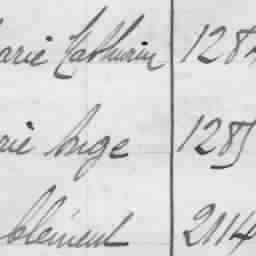 arie Mathurin 128
rie Ange 1285
Clément 2114